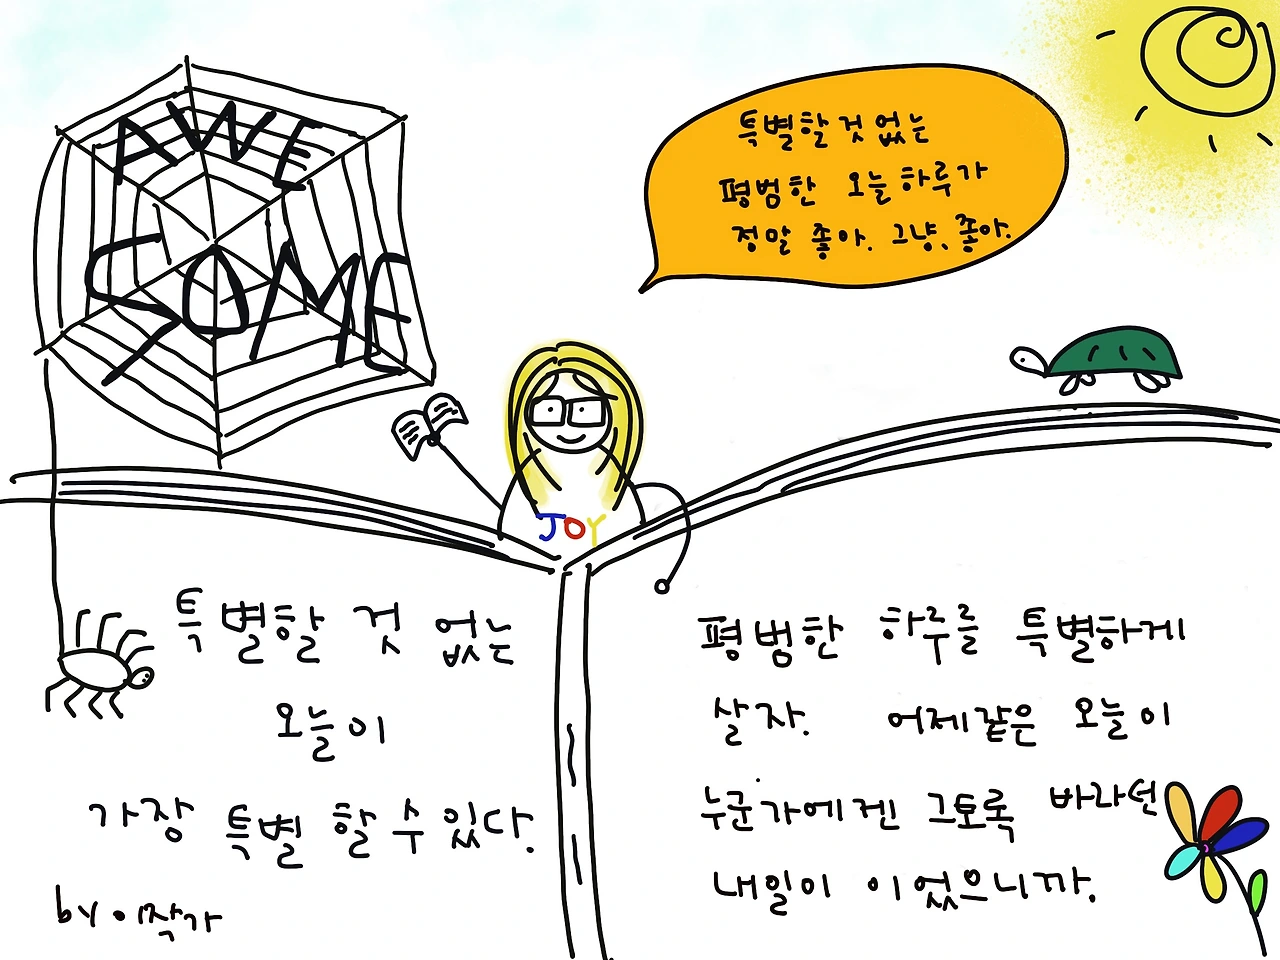 AWE
SOME
특별할 것 없는
평범한 오늘 하루가
정말 좋아. 그냥, 좋아.
JOY
특별할 것 없는
오늘이
가장 특별 할 수 있다.
by 이작가
평범한 하루를 특별하게
살자. 어제같은 오늘이
누군가에겐 그토록 바라던
내일이 이었으니까.